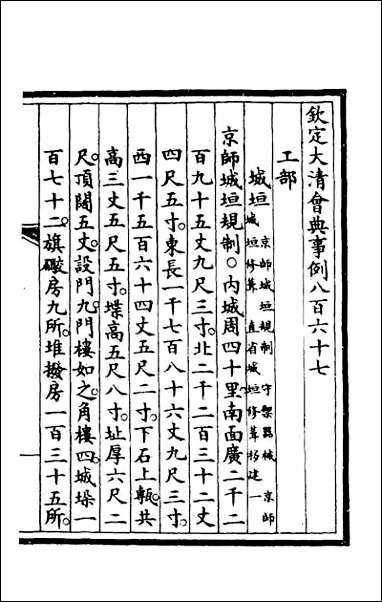 欽定大清會典事例八百六十七
工部
城垣 京師城垣規制 守禦器械 京師
城垣修葺 直省城垣修葺移建一
京師城垣規制〇內城周四十里南面廣二千二
百九十五丈九尺三寸北二千二百三十二丈
四尺五寸東長一千七百八十六丈九尺三寸
西一千五百六十四丈五尺二寸下石上甎共
高三丈五尺五寸堞高五尺八寸址厚六尺二
尺頂闊五丈設門九門樓如之角樓四城垛一
百七十二旗礮房九所堆撥房一百三十五所